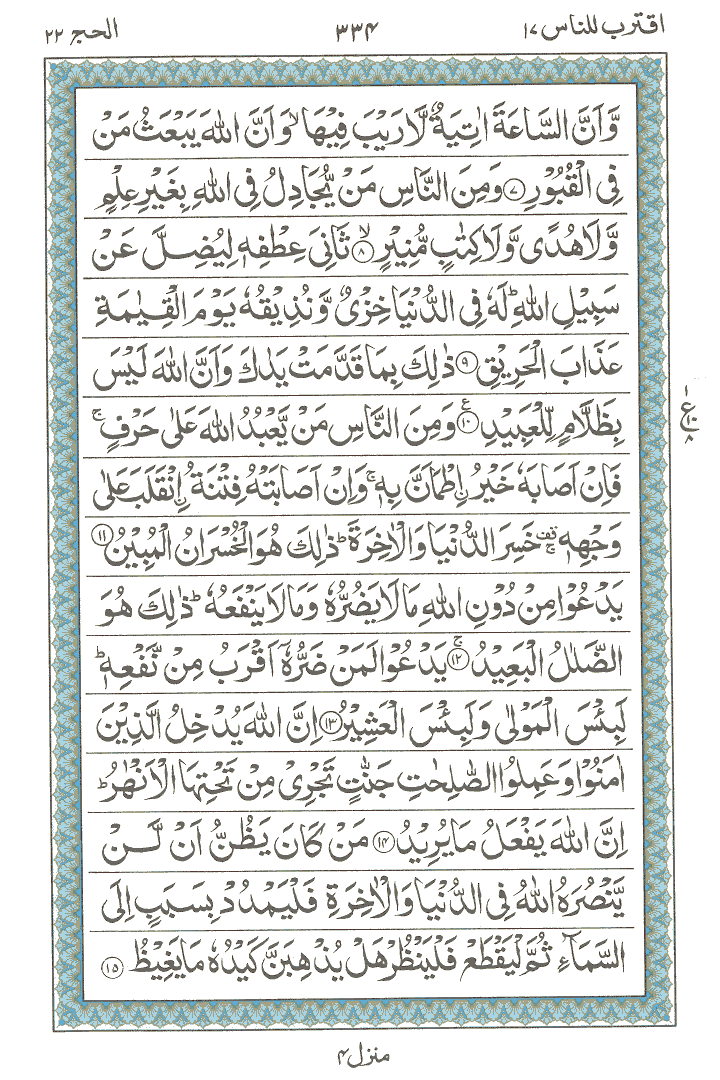 اقترب للناس ۱۷ ۳۳۴ الحج ۲۲
وَّاَنَّ السَّاعَةَ اٰتِيَةٌ لَّا رَيْبَ فِيْهَا ۙ وَاَنَّ اللّٰهَ يَبْعَثُ مَنْ
فِى الْقُبُوْرِ ۷ وَمِنَ النَّاسِ مَنْ يُّجَادِلُ فِى اللّٰهِ بِغَيْرِ عِلْمٍ
وَّلَا هُدًى وَّلَا كِتٰبٍ مُّنِيْرٍ ۙ ۸ ثَانِىَ عِطْفِهٖ لِيُضِلَّ عَنْ
سَبِيْلِ اللّٰهِ ؕ لَهٗ فِى الدُّنْيَا خِزْىٌ وَّنُذِيْقُهٗ يَوْمَ الْقِيٰمَةِ
عَذَابَ الْحَرِيْقِ ۹ ذٰلِكَ بِمَا قَدَّمَتْ يَدٰكَ وَاَنَّ اللّٰهَ لَيْسَ
بِظَلَّامٍ لِّلْعَبِيْدِ ۱۰ ع وَمِنَ النَّاسِ مَنْ يَّعْبُدُ اللّٰهَ عَلٰى حَرْفٍ ۚ
۱ ع ۱۰ ۸
فَاِنْ اَصَابَهٗ خَيْرُ ۨاطْمَاَنَّ بِهٖ ۚ وَاِنْ اَصَابَتْهُ فِتْنَةُ ۨانْقَلَبَ عَلٰى
وَجْهِهٖ قف ۚ خَسِرَ الدُّنْيَا وَالْاٰخِرَةَ ؕ ذٰلِكَ هُوَ الْخُسْرَانُ الْمُبِيْنُ ۱۱
يَدْعُوْا مِنْ دُوْنِ اللّٰهِ مَا لَا يَضُرُّهٗ وَمَا لَا يَنْفَعُهٗ ؕ ذٰلِكَ هُوَ
الضَّلٰلُ الْبَعِيْدُ ۚ ۱۲ يَدْعُوْا لَمَنْ ضَرُّهٗۤ اَقْرَبُ مِنْ نَّفْعِهٖ ؕ
لَبِئْسَ الْمَوْلٰى وَلَبِئْسَ الْعَشِيْرُ ۱۳ اِنَّ اللّٰهَ يُدْخِلُ الَّذِيْنَ
اٰمَنُوْا وَعَمِلُوا الصّٰلِحٰتِ جَنّٰتٍ تَجْرِىْ مِنْ تَحْتِهَا الْاَنْهٰرُ ؕ
اِنَّ اللّٰهَ يَفْعَلُ مَا يُرِيْدُ ۱۴ مَنْ كَانَ يَظُنُّ اَنْ لَّنْ
يَّنْصُرَهُ اللّٰهُ فِى الدُّنْيَا وَالْاٰخِرَةِ فَلْيَمْدُدْ بِسَبَبٍ اِلَى
السَّمَآءِ ثُمَّ لْيَقْطَعْ فَلْيَنْظُرْ هَلْ يُذْهِبَنَّ كَيْدُهٗ مَا يَغِيْظُ ۱۵
منزل ۴